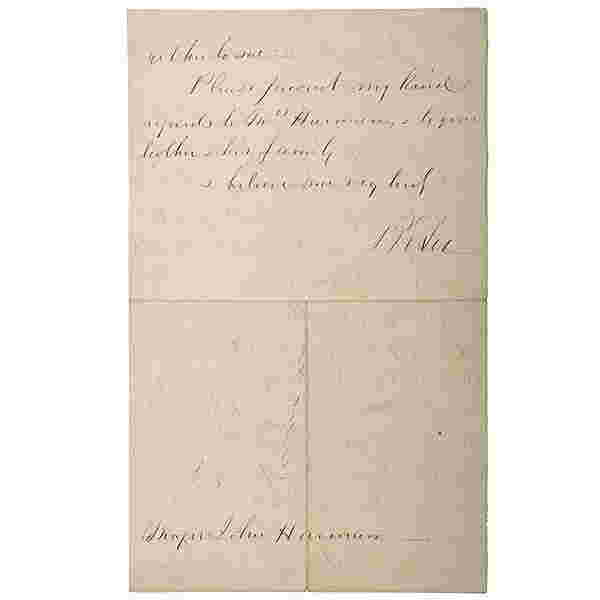 Please present my kind
regards to Mrs Harman, & to your
brother & his family
& believe me very truly
R E Lee
Major John Harman